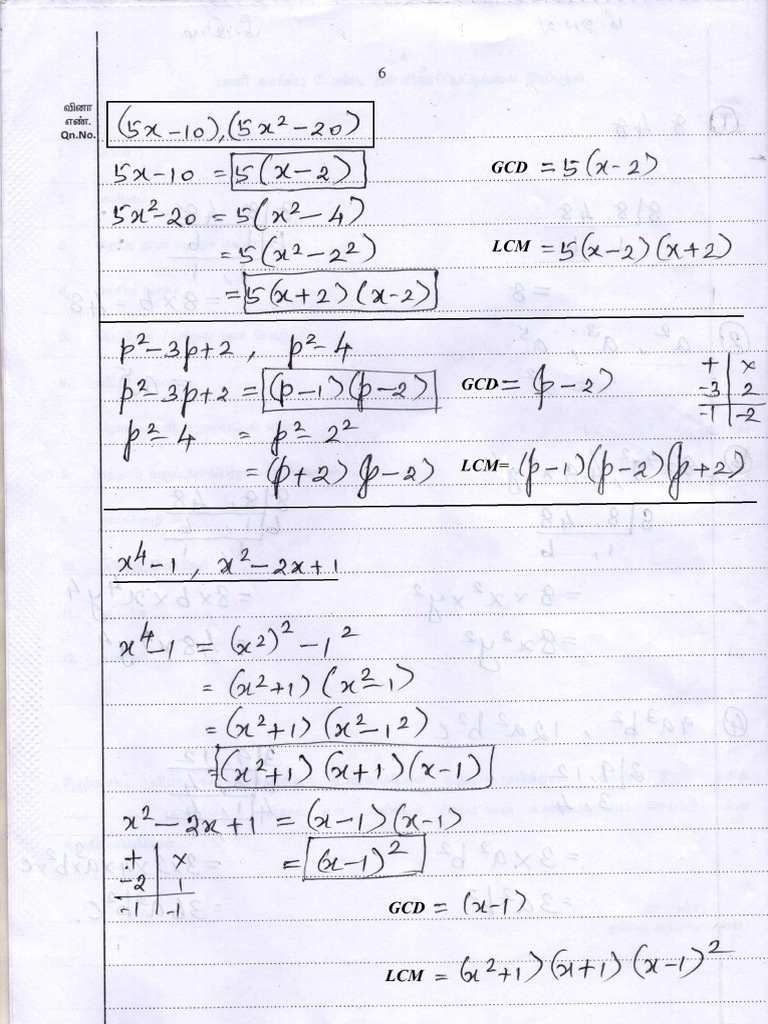 6
வினா
எண்.
Qn.No.
(5x-10), (5x²-20)
5x-10 = 5(x-2)
GCD = 5(x-2)
5x²-20 = 5(x²-4)
= 5(x²-2²)
LCM = 5(x-2)(x+2)
= 5(x+2)(x-2)
p²-3p+2, p²-4
p²-3p+2 = (p-1)(p-2)
GCD = (p-2)
+ x
-3 2
-1 -2
p²-4 = p²-2²
= (p+2)(p-2)
LCM = (p-1)(p-2)(p+2)
x⁴-1, x²-2x+1
x⁴-1 = (x²)²-1²
= (x²+1)(x²-1)
= (x²+1)(x²-1²)
= (x²+1)(x+1)(x-1)
x²-2x+1 = (x-1)(x-1)
= (x-1)²
+ x
-2 1
-1 -1
GCD = (x-1)
LCM = (x²+1)(x+1)(x-1)²